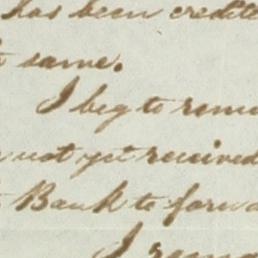 has been credite
same.
I beg to remi
not yet received
Bank to forwa
I rema